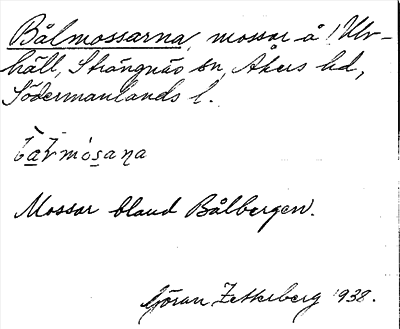 Bålmossarna, mossar å Ulv-
häll, Strängnäs sn, Åkers hd,
Södermanlands l.
Mossar bland Bålbergen.
Göran Zetterberg 1938.